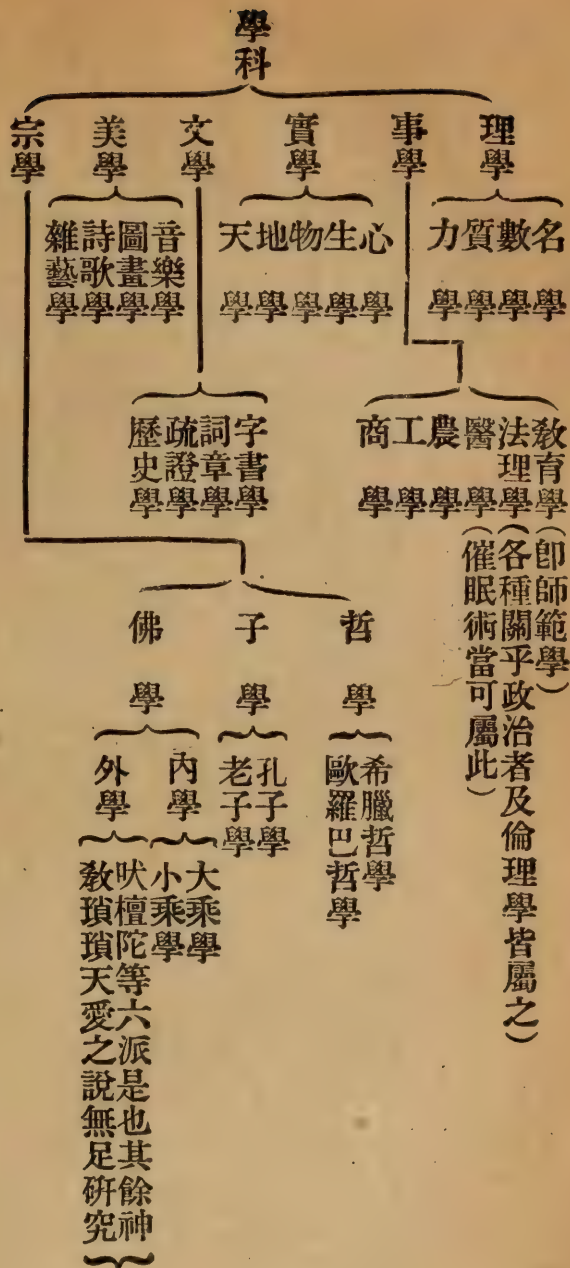 學科
理學
名學
數學
質學
力學
事學
教育學(即師範學)
法理學(各種關乎政治者及倫理學皆屬之)
醫學(催眠術當可屬此)
農學
工學
商學
實學
心學
生學
物學
地學
天學
文學
字書學
詞章學
疏證學
歷史學
美學
音樂學
圖畫學
詩歌學
雜藝學
宗學
哲學
希臘哲學
歐羅巴哲學
子學
孔子學
老子學
佛學
內學
大乘學
小乘學
外學
吠檀陀等六派是也其餘神
教瑣瑣天愛之說無足研究